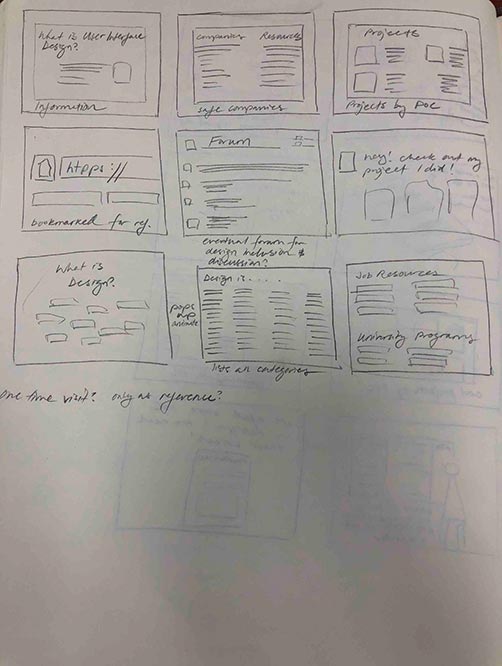 What is User Interface
Design?
Information
Companies Resources
safe companies
Projects
Projects by POC
https://
bookmarked for ref.
Forum
eventual forum for
design inclusion &
discussion?
Hey! check out my
project I did!
What is
Design?
pops
up
animate
Design is.....
lists all categories
Job Resources
University programs
one time visit? only as reference?